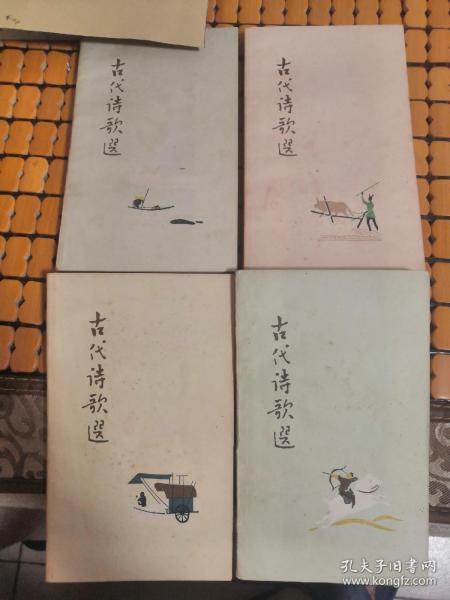 古代诗歌選
古代诗歌選
古代诗歌選
古代诗歌選
孔夫子旧书网
www.kongfz.com